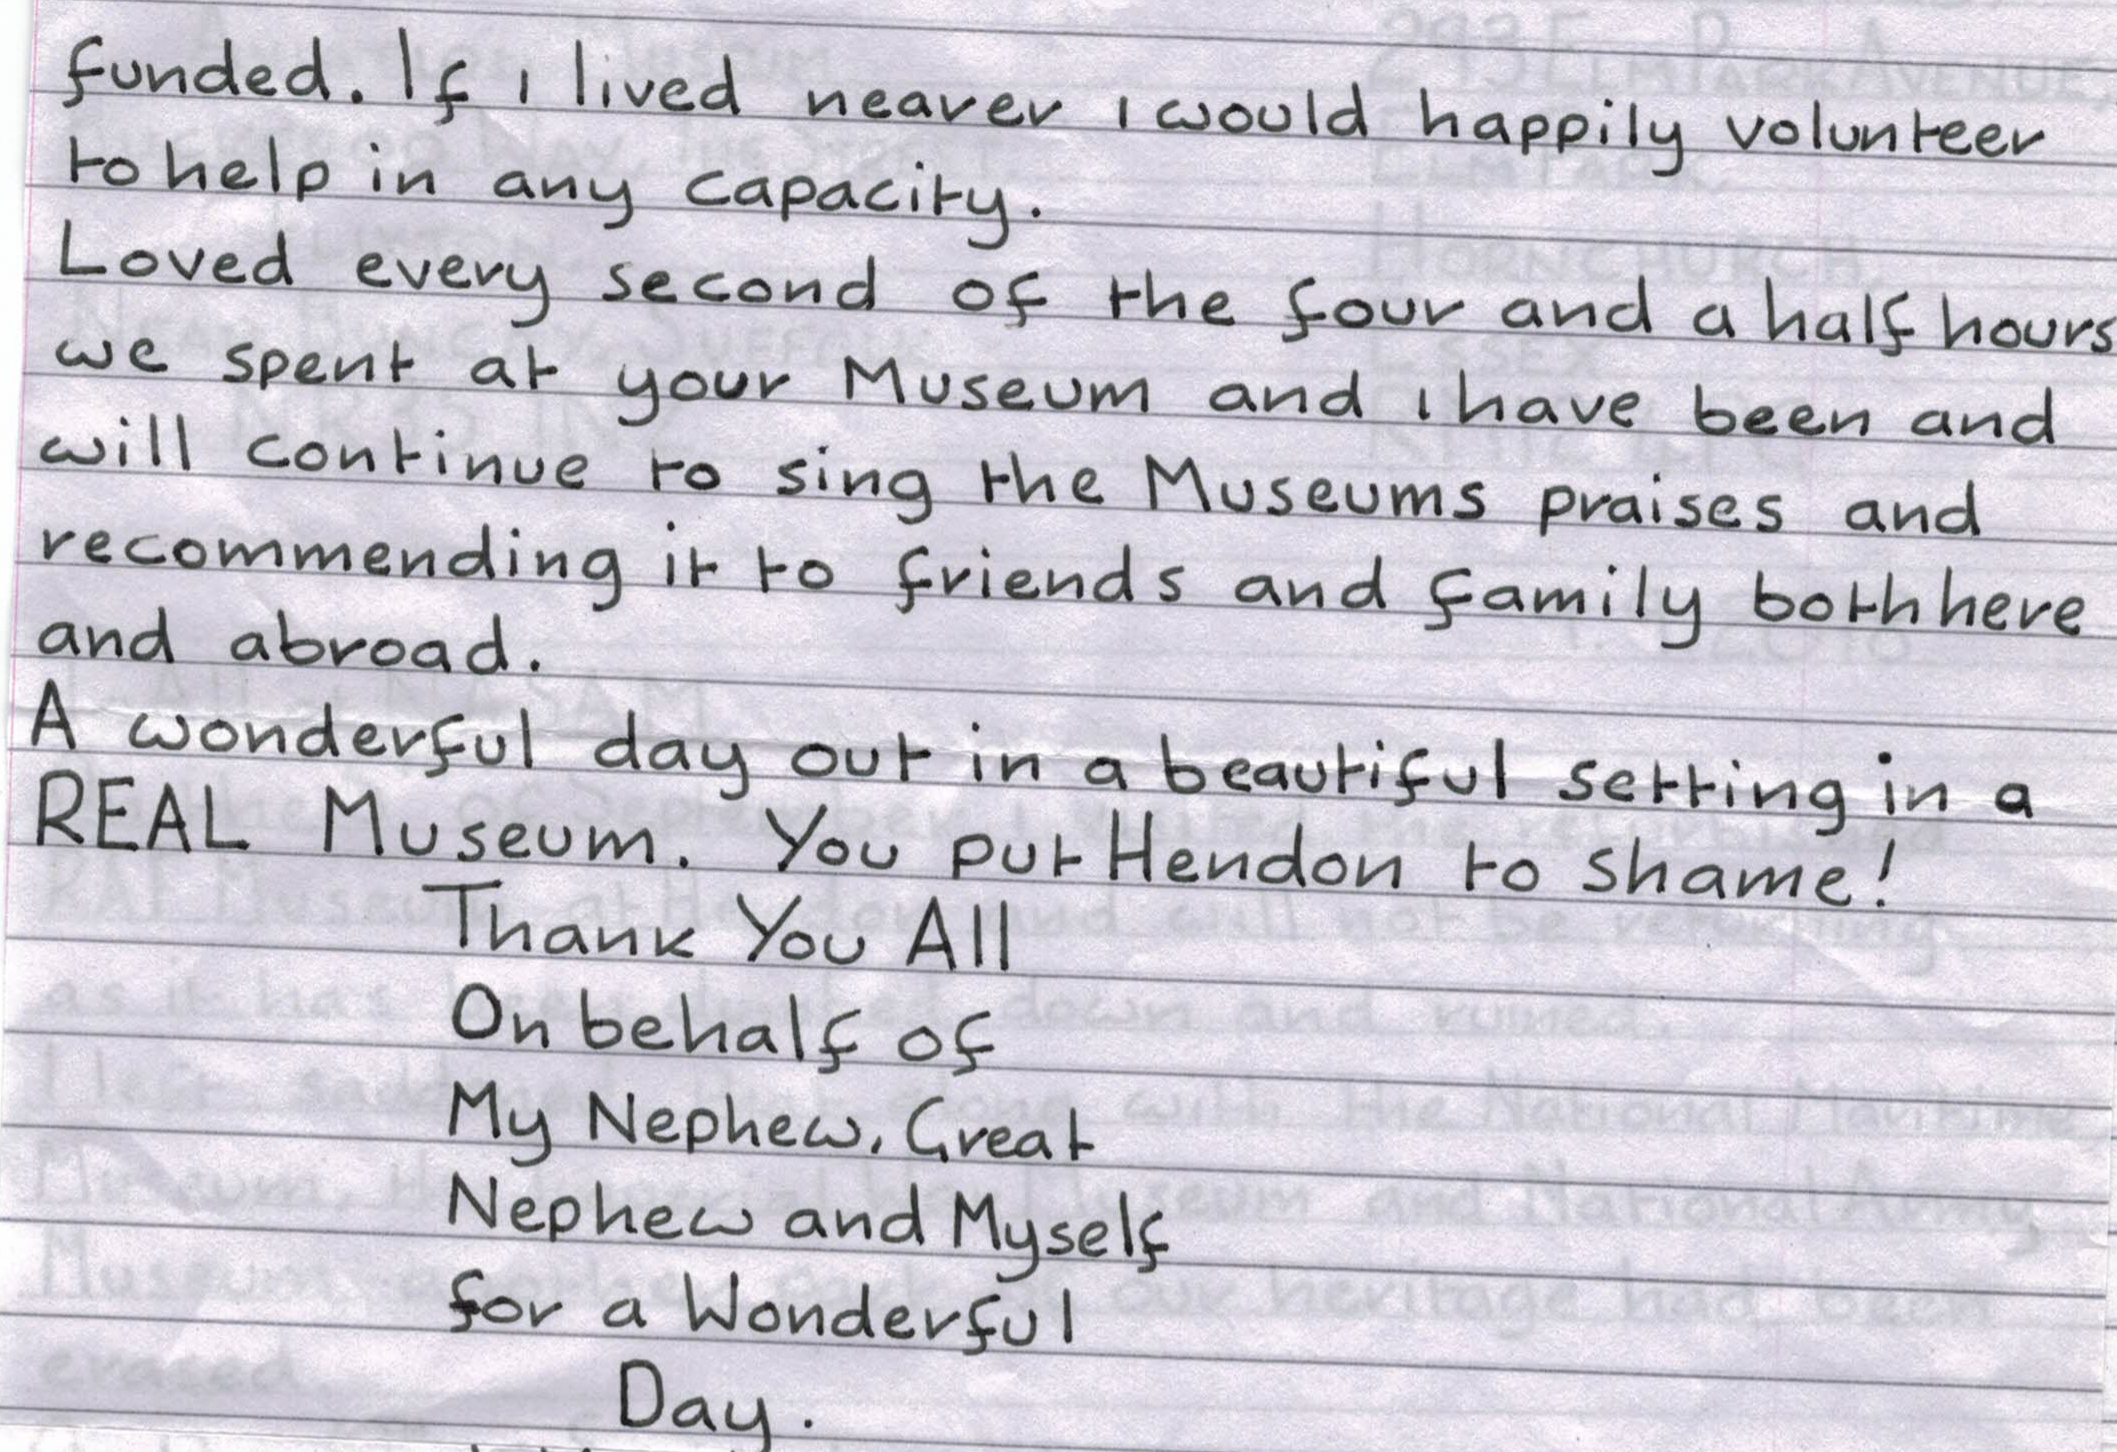 funded. If i lived nearer i would happily volunteer
to help in any capacity.
Loved every second of the four and a half hours
we spent at your Museum and i have been and
will continue to sing the Museums praises and
recommending it to friends and family both here
and abroad.
A wonderful day out in a beautiful setting in a
REAL Museum. You put Hendon to shame!
Thank You All
On behalf of
My Nephew, Great
Nephew and Myself
for a Wonderful
Day.